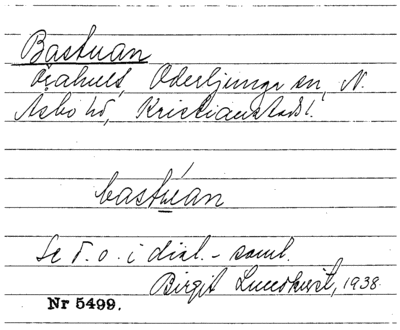 Bastuan
Örahult, Oderljunga sn, N.
Åsbo hd, Kristianstads l.
bastuan
Se d. o. i dial.-saml.
Birgit Lundkvist, 1938.
Nr 5499.